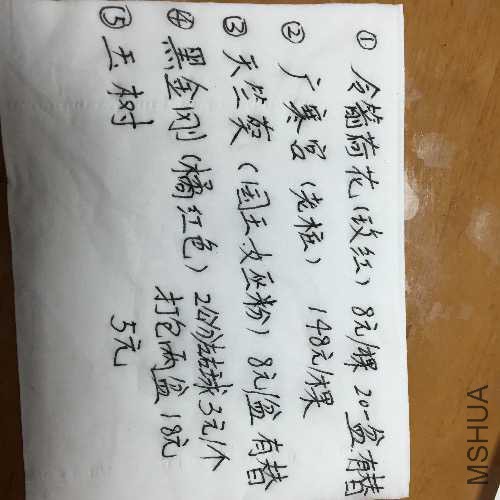 ① 令箭荷花(玫红) 8元/棵 20一盆有替
② 广寒宫(老桩) 148元/棵
③ 天竺葵(国王女巫粉) 8元/盆 有替
④ 黑金刚(橘红色) 2公分活球3元/个
打包两盆18元
⑤ 玉树 5元
MSHUA